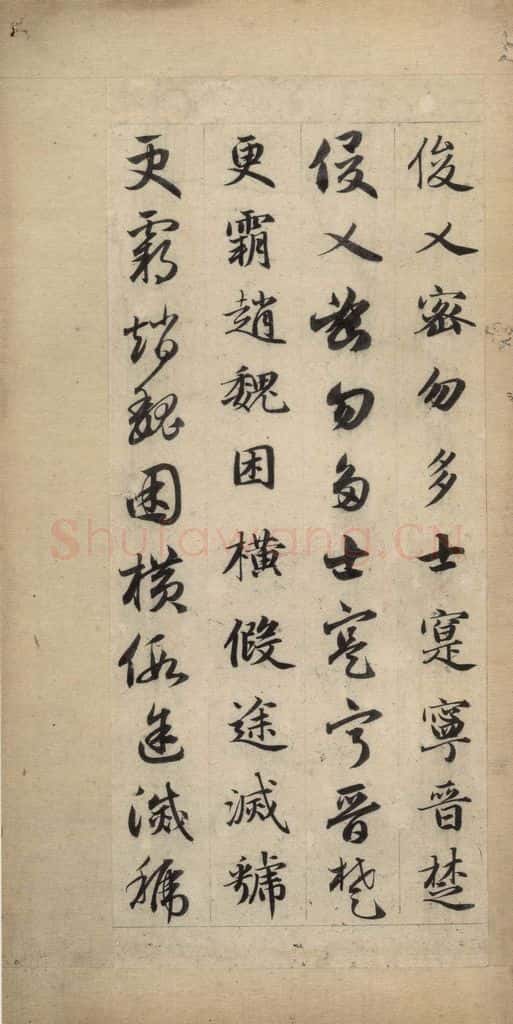 俊乂密勿多士寔寧晉楚
俊乂密勿多士寔寧晉楚
更霸趙魏困橫假途滅虢
更霸趙魏困橫假途滅虢
Shufawang.CN